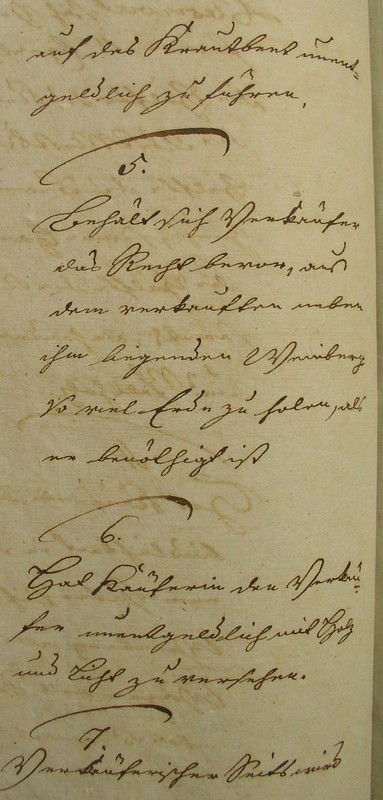 auf das Krautbeet unent-
geldlich zu führen.
5.
Behält sich Verkäufer
das Recht bevor, aus
dem verkauften neben
ihm liegenden Weinberg
so viel Erde zu holen, als
er benöthigt ist
6.
Hat Käuferin den Verkäu-
fer unentgeldlich mit Holz
und Licht zu versehen.
7.
Verkäuferischer Seits wird